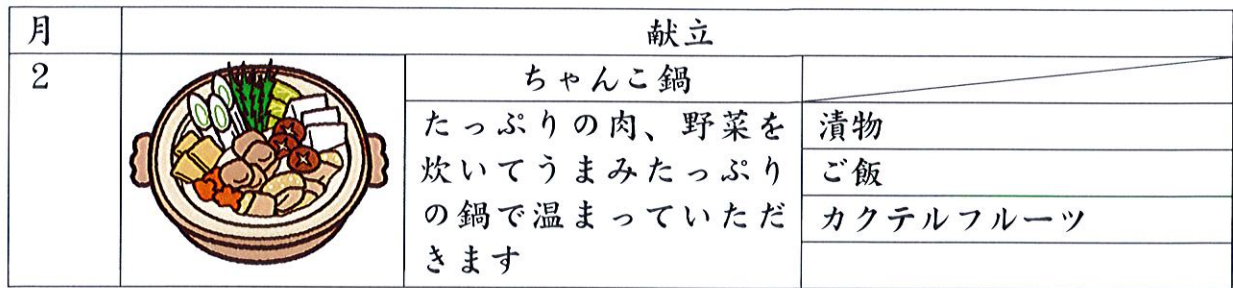 月 献立
2
ちゃんこ鍋
たっぷりの肉、野菜を
炊いてうまみたっぷり
の鍋で温まっていただ
きます
漬物
ご飯
カクテルフルーツ